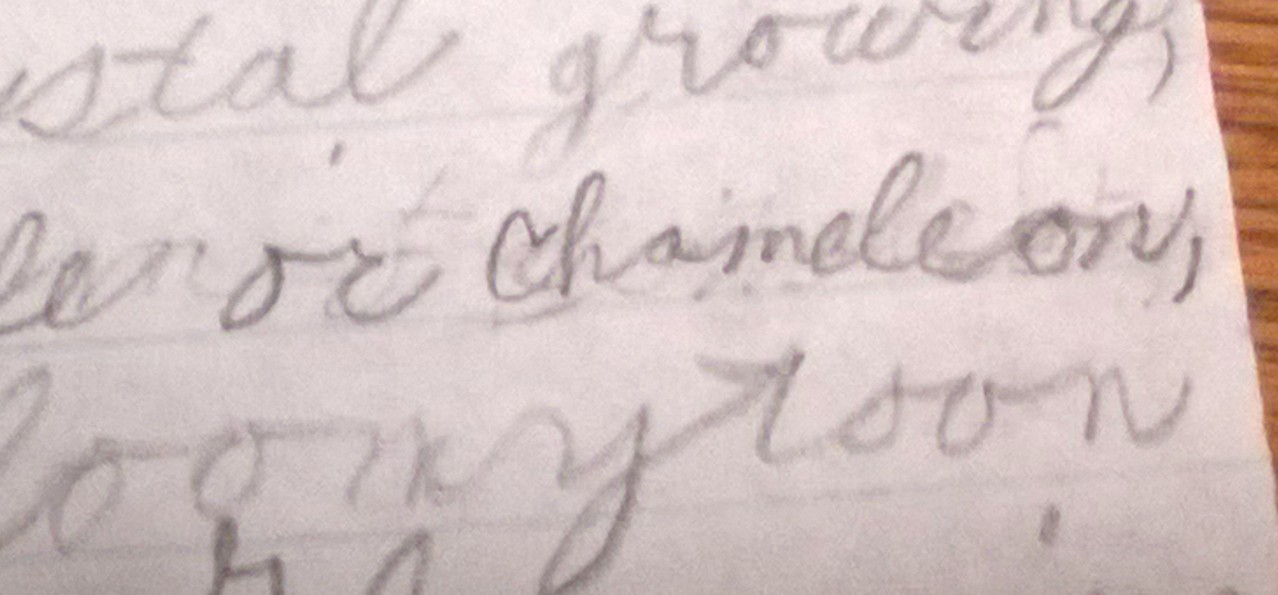 stal growing,
or chameleon,
loony toon